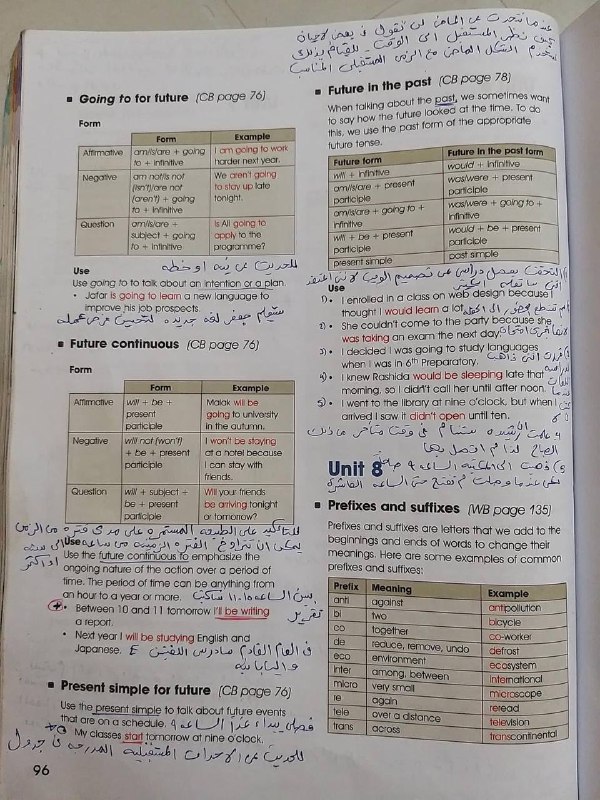 عندما نتحدث عن الماضي
Going to for future (CB page 76)
Form
Form Example
Affirmative am/is/are + going to + infinitive I am going to work harder next year.
Negative am not/is not (isn't)/are not (aren't) + going to + infinitive We aren't going to stay up late tonight.
Question am/is/are + subject + going to + infinitive Is Ali going to apply to the programme?
للحديث عن نية او خطة
Use
Use going to to talk about an intention or a plan.
• Jafar is going to learn a new language to
improve his job prospects.
سيتعلم جعفر لغة جديدة لتحسين فرص عمله
Future continuous (CB page 76)
Form
Form Example
Affirmative will + be + present participle Malak will be going to university in the autumn.
Negative will not (won't) + be + present participle I won't be staying at a hotel because I can stay with friends.
Question will + subject + be + present participle Will your friends be arriving tonight or tomorrow?
للتأكيد على الطبيعة المستمرة على مدى فترة من الزمن
يمكن ان تتراوح الفترة الزمنية من ساعة
Use
Use the future continuous to emphasize the
ongoing nature of the action over a period of
time. The period of time can be anything from
an hour to a year or more.
• Between 10 and 11 tomorrow I'll be writing
a report.
• Next year I will be studying English and
Japanese.
في العام القادم سادرس اللغتين
و اليابانية
Present simple for future (CB page 76)
Use the present simple to talk about future events
that are on a schedule.
• My classes start tomorrow at nine o'clock.
للحديث عن الاحداث المستقبلية المدرجة في جدول
96
Future in the past (CB page 78)
When talking about the past, we sometimes want
to say how the future looked at the time. To do
this, we use the past form of the appropriate
future tense.
Future form Future in the past form
will + infinitive would + infinitive
am/is/are + present participle was/were + present participle
am/is/are + going to + infinitive was/were + going to + infinitive
will + be + present participle would + be + present participle
present simple past simple
Use
1) • I enrolled in a class on web design because I
thought I would learn a lot.
2) • She couldn't come to the party because she
was taking an exam the next day.
3) • I decided I was going to study languages
when I was in 6th Preparatory.
4) • I knew Rashida would be sleeping late that
morning, so I didn't call her until after noon.
5) • I went to the library at nine o'clock, but when I
arrived I saw it didn't open until ten.
Unit 8
Prefixes and suffixes (WB page 135)
Prefixes and suffixes are letters that we add to the
beginnings and ends of words to change their
meanings. Here are some examples of common
prefixes and suffixes:
Prefix Meaning Example
anti against antipollution
bi two bicycle
co together co-worker
de reduce, remove, undo defrost
eco environment ecosystem
inter among, between international
micro very small microscope
re again reread
tele over a distance television
trans across transcontinental